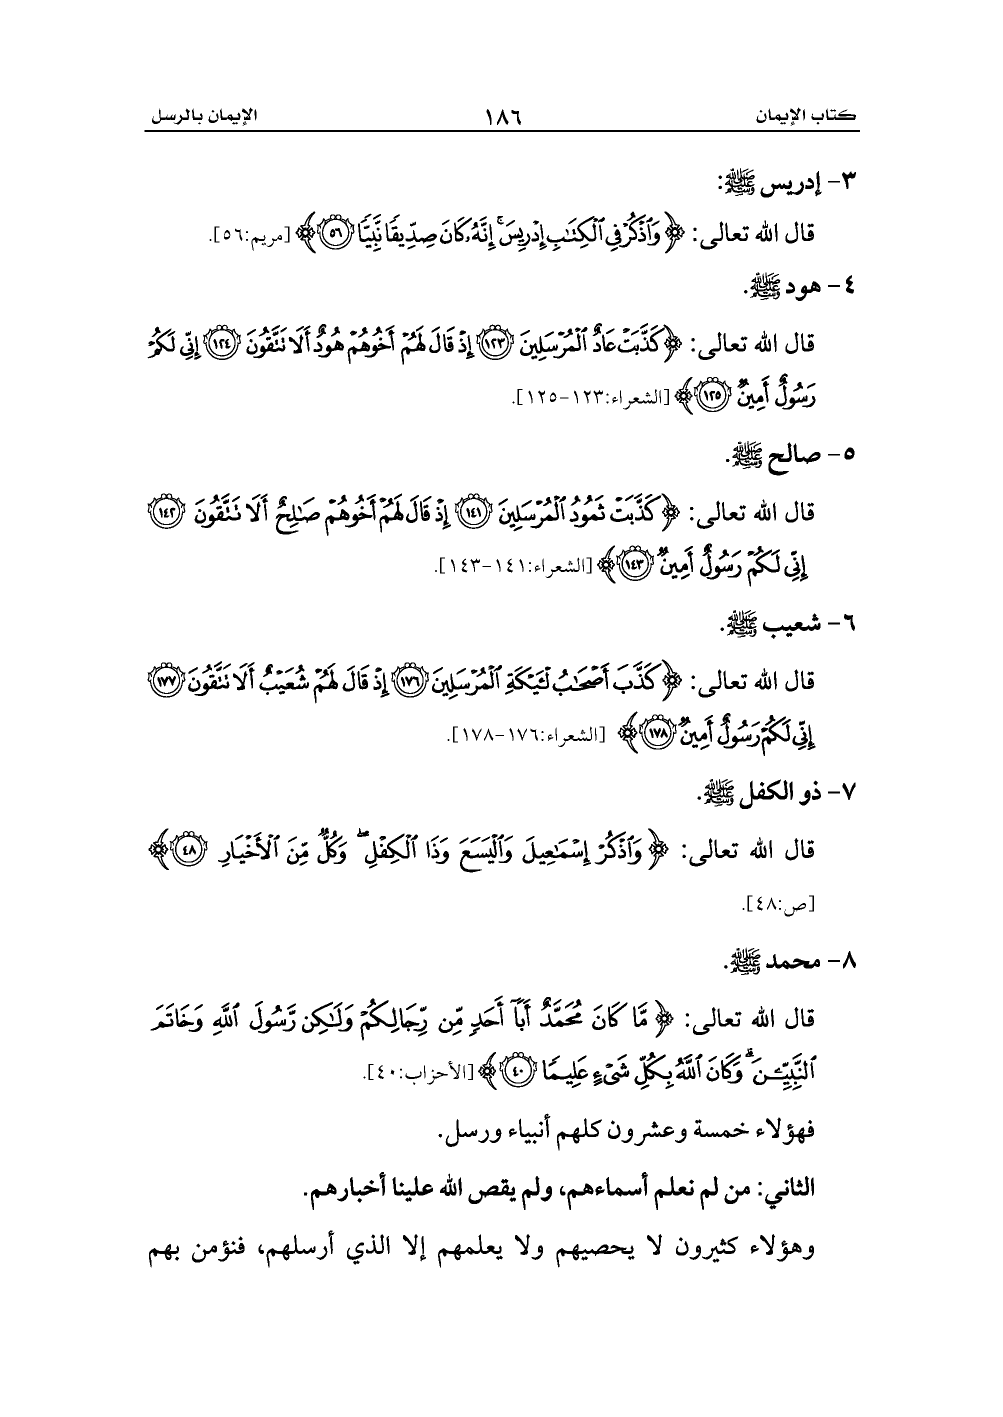 كتاب الإيمان ١٨٦ الإيمان بالرسل
٣- إدريس ﷺ:
قال الله تعالى: ﴿وَٱذْكُرْ فِي ٱلْكِتَٰبِ إِدْرِيسَ ۚ إِنَّهُۥ كَانَ صِدِّيقًا نَّبِيًّا ٥٦﴾ [مريم:٥٦].
٤- هود ﷺ.
قال الله تعالى: ﴿كَذَّبَتْ عَادٌ ٱلْمُرْسَلِينَ ١٢٣ إِذْ قَالَ لَهُمْ أَخُوهُمْ هُودٌ أَلَا تَتَّقُونَ ١٢٤ إِنِّي لَكُمْ
رَسُولٌ أَمِينٌ ١٢٥﴾ [الشعراء:١٢٣-١٢٥].
٥- صالح ﷺ.
قال الله تعالى: ﴿كَذَّبَتْ ثَمُودُ ٱلْمُرْسَلِينَ ١٤١ إِذْ قَالَ لَهُمْ أَخُوهُمْ صَٰلِحٌ أَلَا تَتَّقُونَ ١٤٢
إِنِّي لَكُمْ رَسُولٌ أَمِينٌ ١٤٣﴾ [الشعراء:١٤١-١٤٣].
٦- شعيب ﷺ.
قال الله تعالى: ﴿كَذَّبَ أَصْحَٰبُ لْـَٔيْكَةِ ٱلْمُرْسَلِينَ ١٧٦ إِذْ قَالَ لَهُمْ شُعَيْبٌ أَلَا تَتَّقُونَ ١٧٧
إِنِّي لَكُمْ رَسُولٌ أَمِينٌ ١٧٨﴾ [الشعراء:١٧٦-١٧٨].
٧- ذو الكفل ﷺ.
قال الله تعالى: ﴿وَٱذْكُرْ إِسْمَٰعِيلَ وَٱلْيَسَعَ وَذَا ٱلْكِفْلِ ۖ وَكُلٌّ مِّنَ ٱلْأَخْيَارِ ٤٨﴾
[ص:٤٨].
٨- محمد ﷺ.
قال الله تعالى: ﴿مَّا كَانَ مُحَمَّدٌ أَبَآ أَحَدٍ مِّن رِّجَالِكُمْ وَلَٰكِن رَّسُولَ ٱللَّهِ وَخَاتَمَ
ٱلنَّبِيِّـۧنَ ۗ وَكَانَ ٱللَّهُ بِكُلِّ شَيْءٍ عَلِيمًا ٤٠﴾ [الأحزاب:٤٠].
فهؤلاء خمسة وعشرون كلهم أنبياء ورسل.
الثاني: من لم نعلم أسماءهم، ولم يقص الله علينا أخبارهم.
وهؤلاء كثيرون لا يحصيهم ولا يعلمهم إلا الذي أرسلهم، فنؤمن بهم